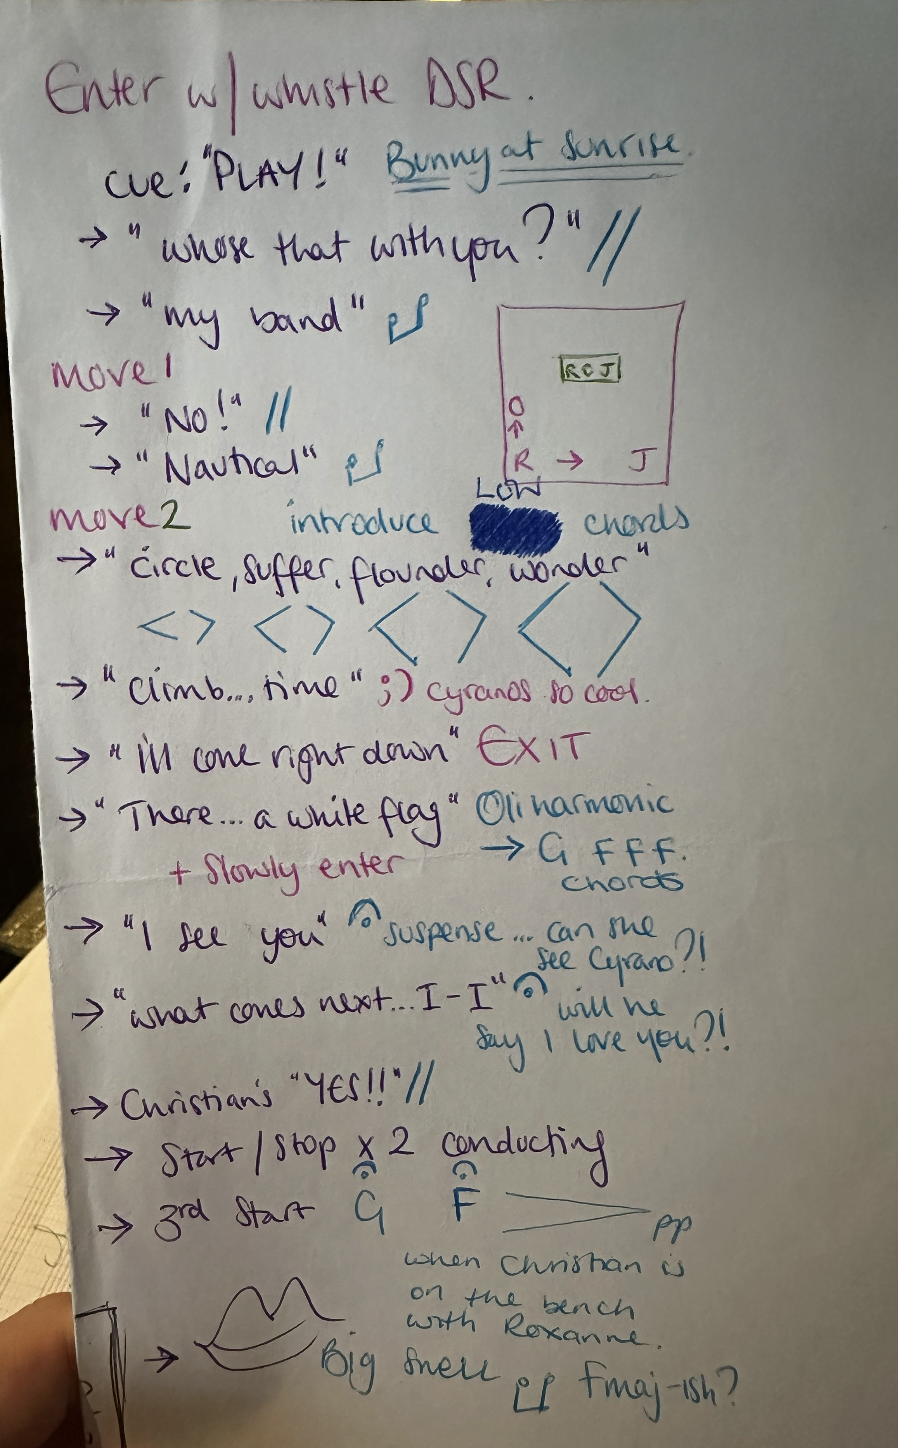 Enter w/ whistle DSR.
cue: "PLAY!" Bunny at sunrise.
→ "whose that with you?" //
→ "my band"
move 1
→ "No!" //
→ "Nautical"
ROJ
O
↑
R → J
move 2
LOW
introduce chords
→ "circle, suffer, flounder, wonder"
< > < > < > < >
→ "climb... time" ;) cyranos so cool.
→ "i'll come right down" EXIT
→ "There... a white flag" Oli harmonic
→ G F F F.
+ slowly enter
chords
→ "I see you" suspense... can she
see Cyrano?!
→ "what comes next... I-I" will he
say I love you?!
→ Christian's "YES!!" //
→ Start/stop x 2 conducting
→ 3rd start G F pp
when Christian is
on the bench
with Roxanne.
→ Big swell Fmaj-ish?